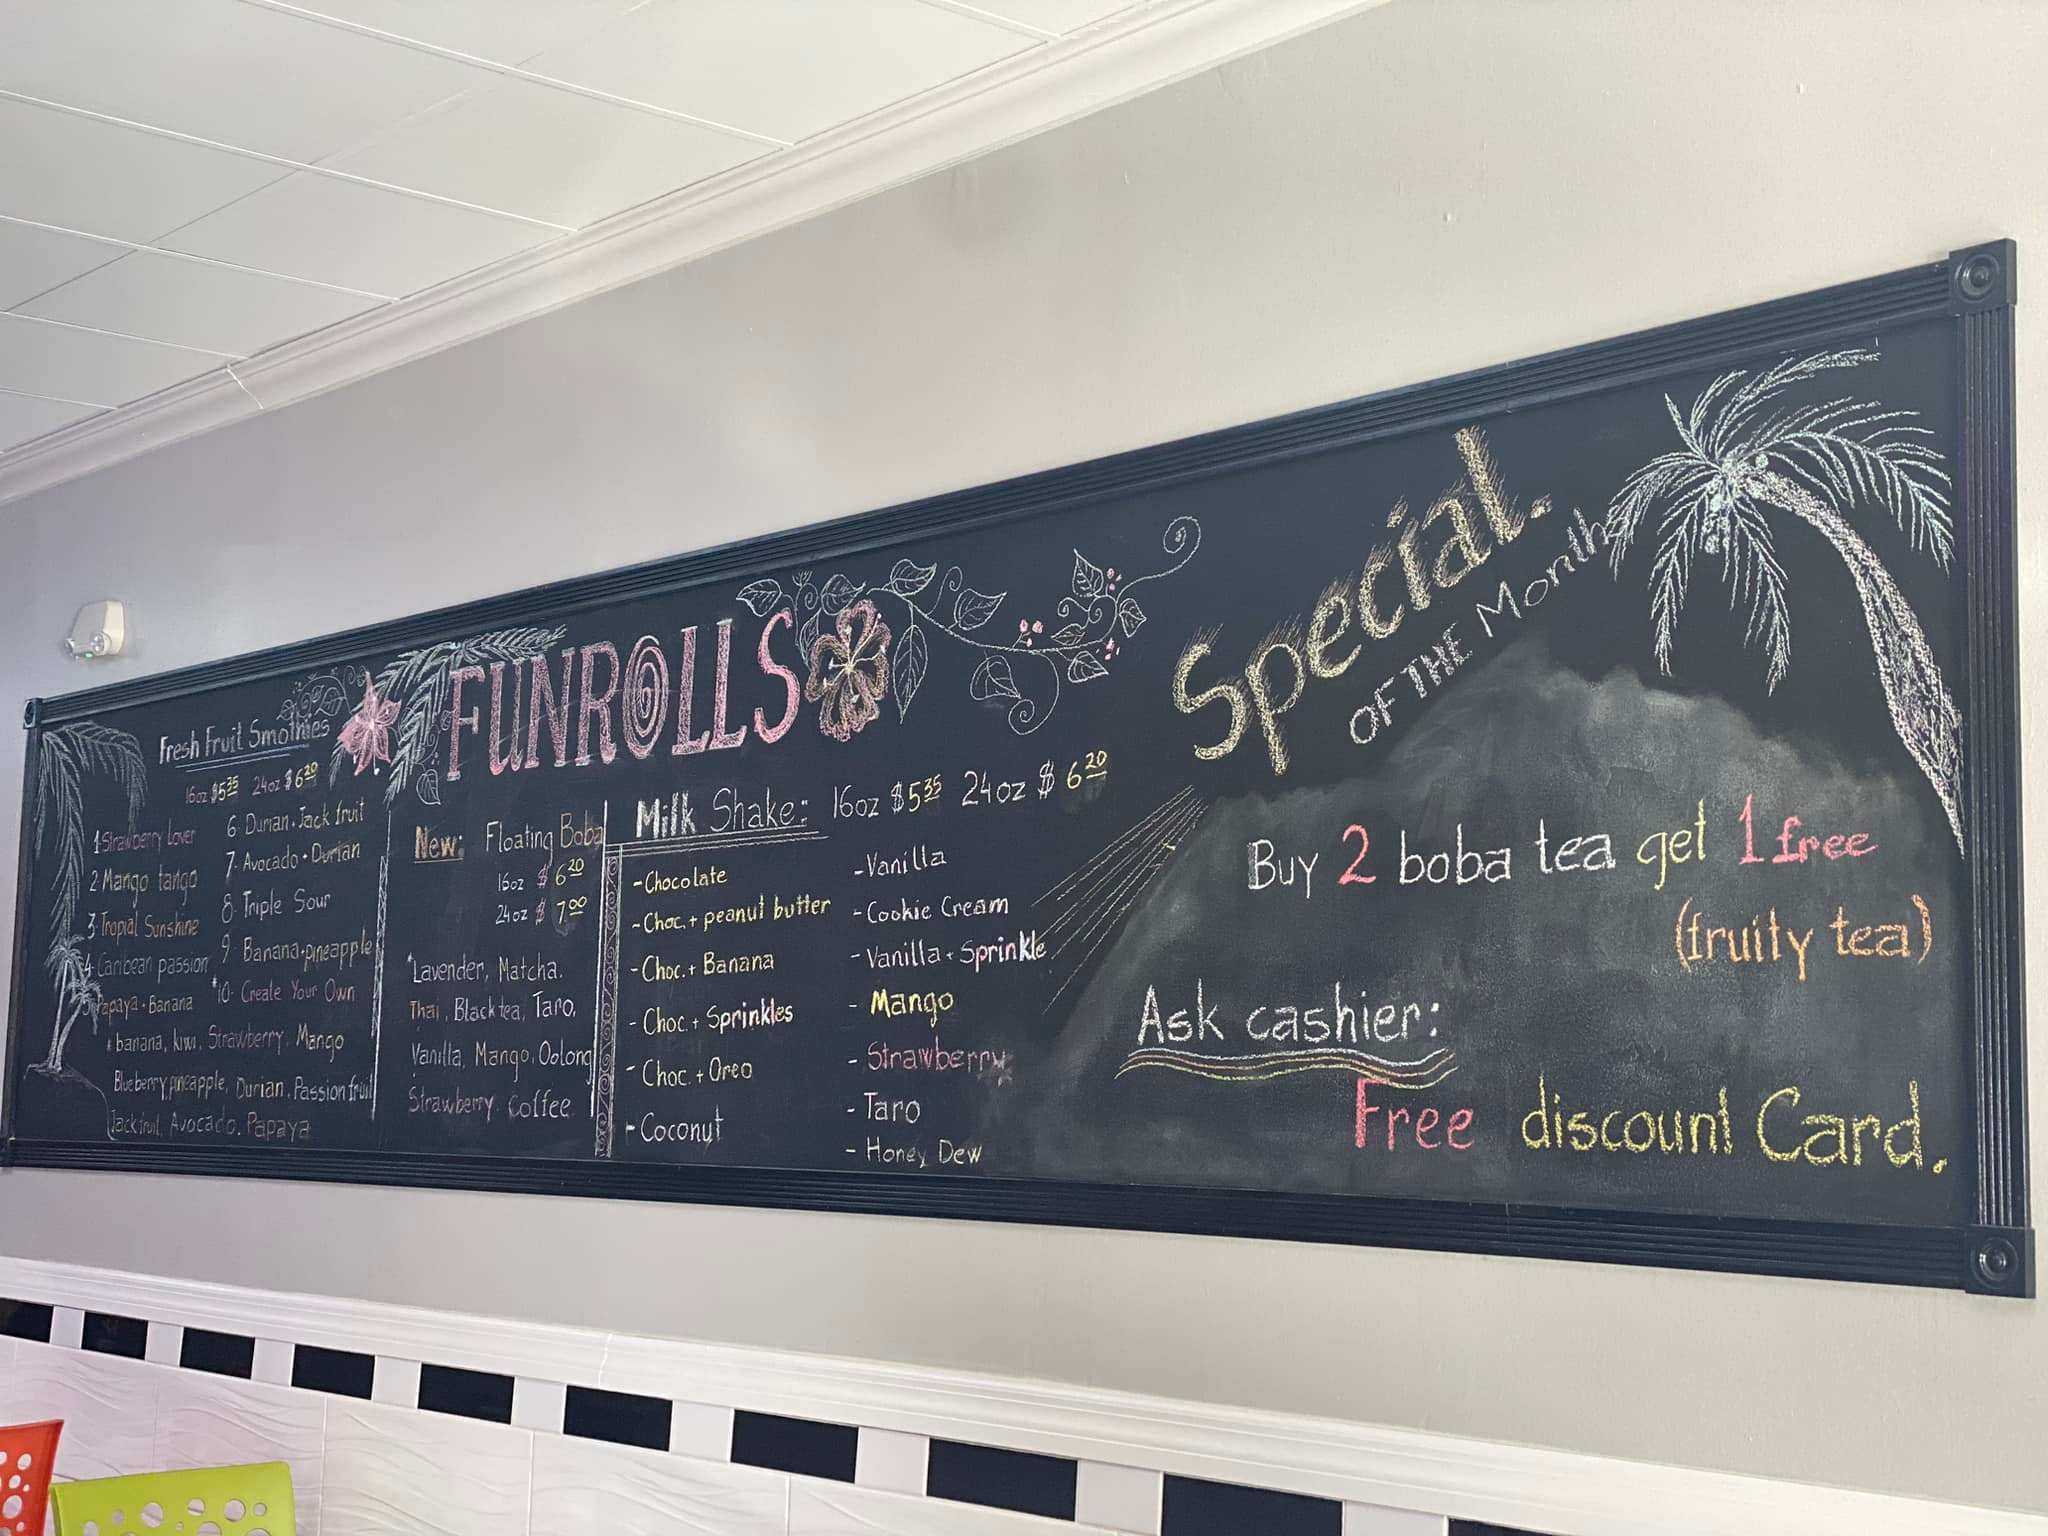 Fresh Fruit Smothies
16oz $5.35 24oz $6.20
1 Strawberry Lover
2 Mango tango
3 Tropial Sunshine
4- Caribean passion
5 Papaya + Banana
6- Durian + Jack fruit
7- Avocado + Durian
8- Triple Sour
9 Banana + pineapple
*10- Create Your Own
* banana, kiwi, Strawberry, Mango
Blueberry, pineapple, Durian, Passion fruit
Jackfruit, Avocado, Papaya
FUNROLLS
New: Floating Boba
16oz $6.20
24oz $7.00
*Lavender, Matcha.
Thai, Black tea, Taro,
Vanilla, Mango, Oolong
Strawberry, Coffee
Milk Shake: 16oz $5.35 24oz $6.20
-Chocolate
-Choc. + peanut butter
-Choc. + Banana
-Choc. + Sprinkles
-Choc. + Oreo
-Coconut
-Vanilla
-Cookie Cream
-Vanilla + Sprinkle
- Mango
- Strawberry
- Taro
- Honey Dew
Special.
OF THE Month
Buy 2 boba tea get 1 free
(fruity tea)
Ask cashier:
Free discount Card.